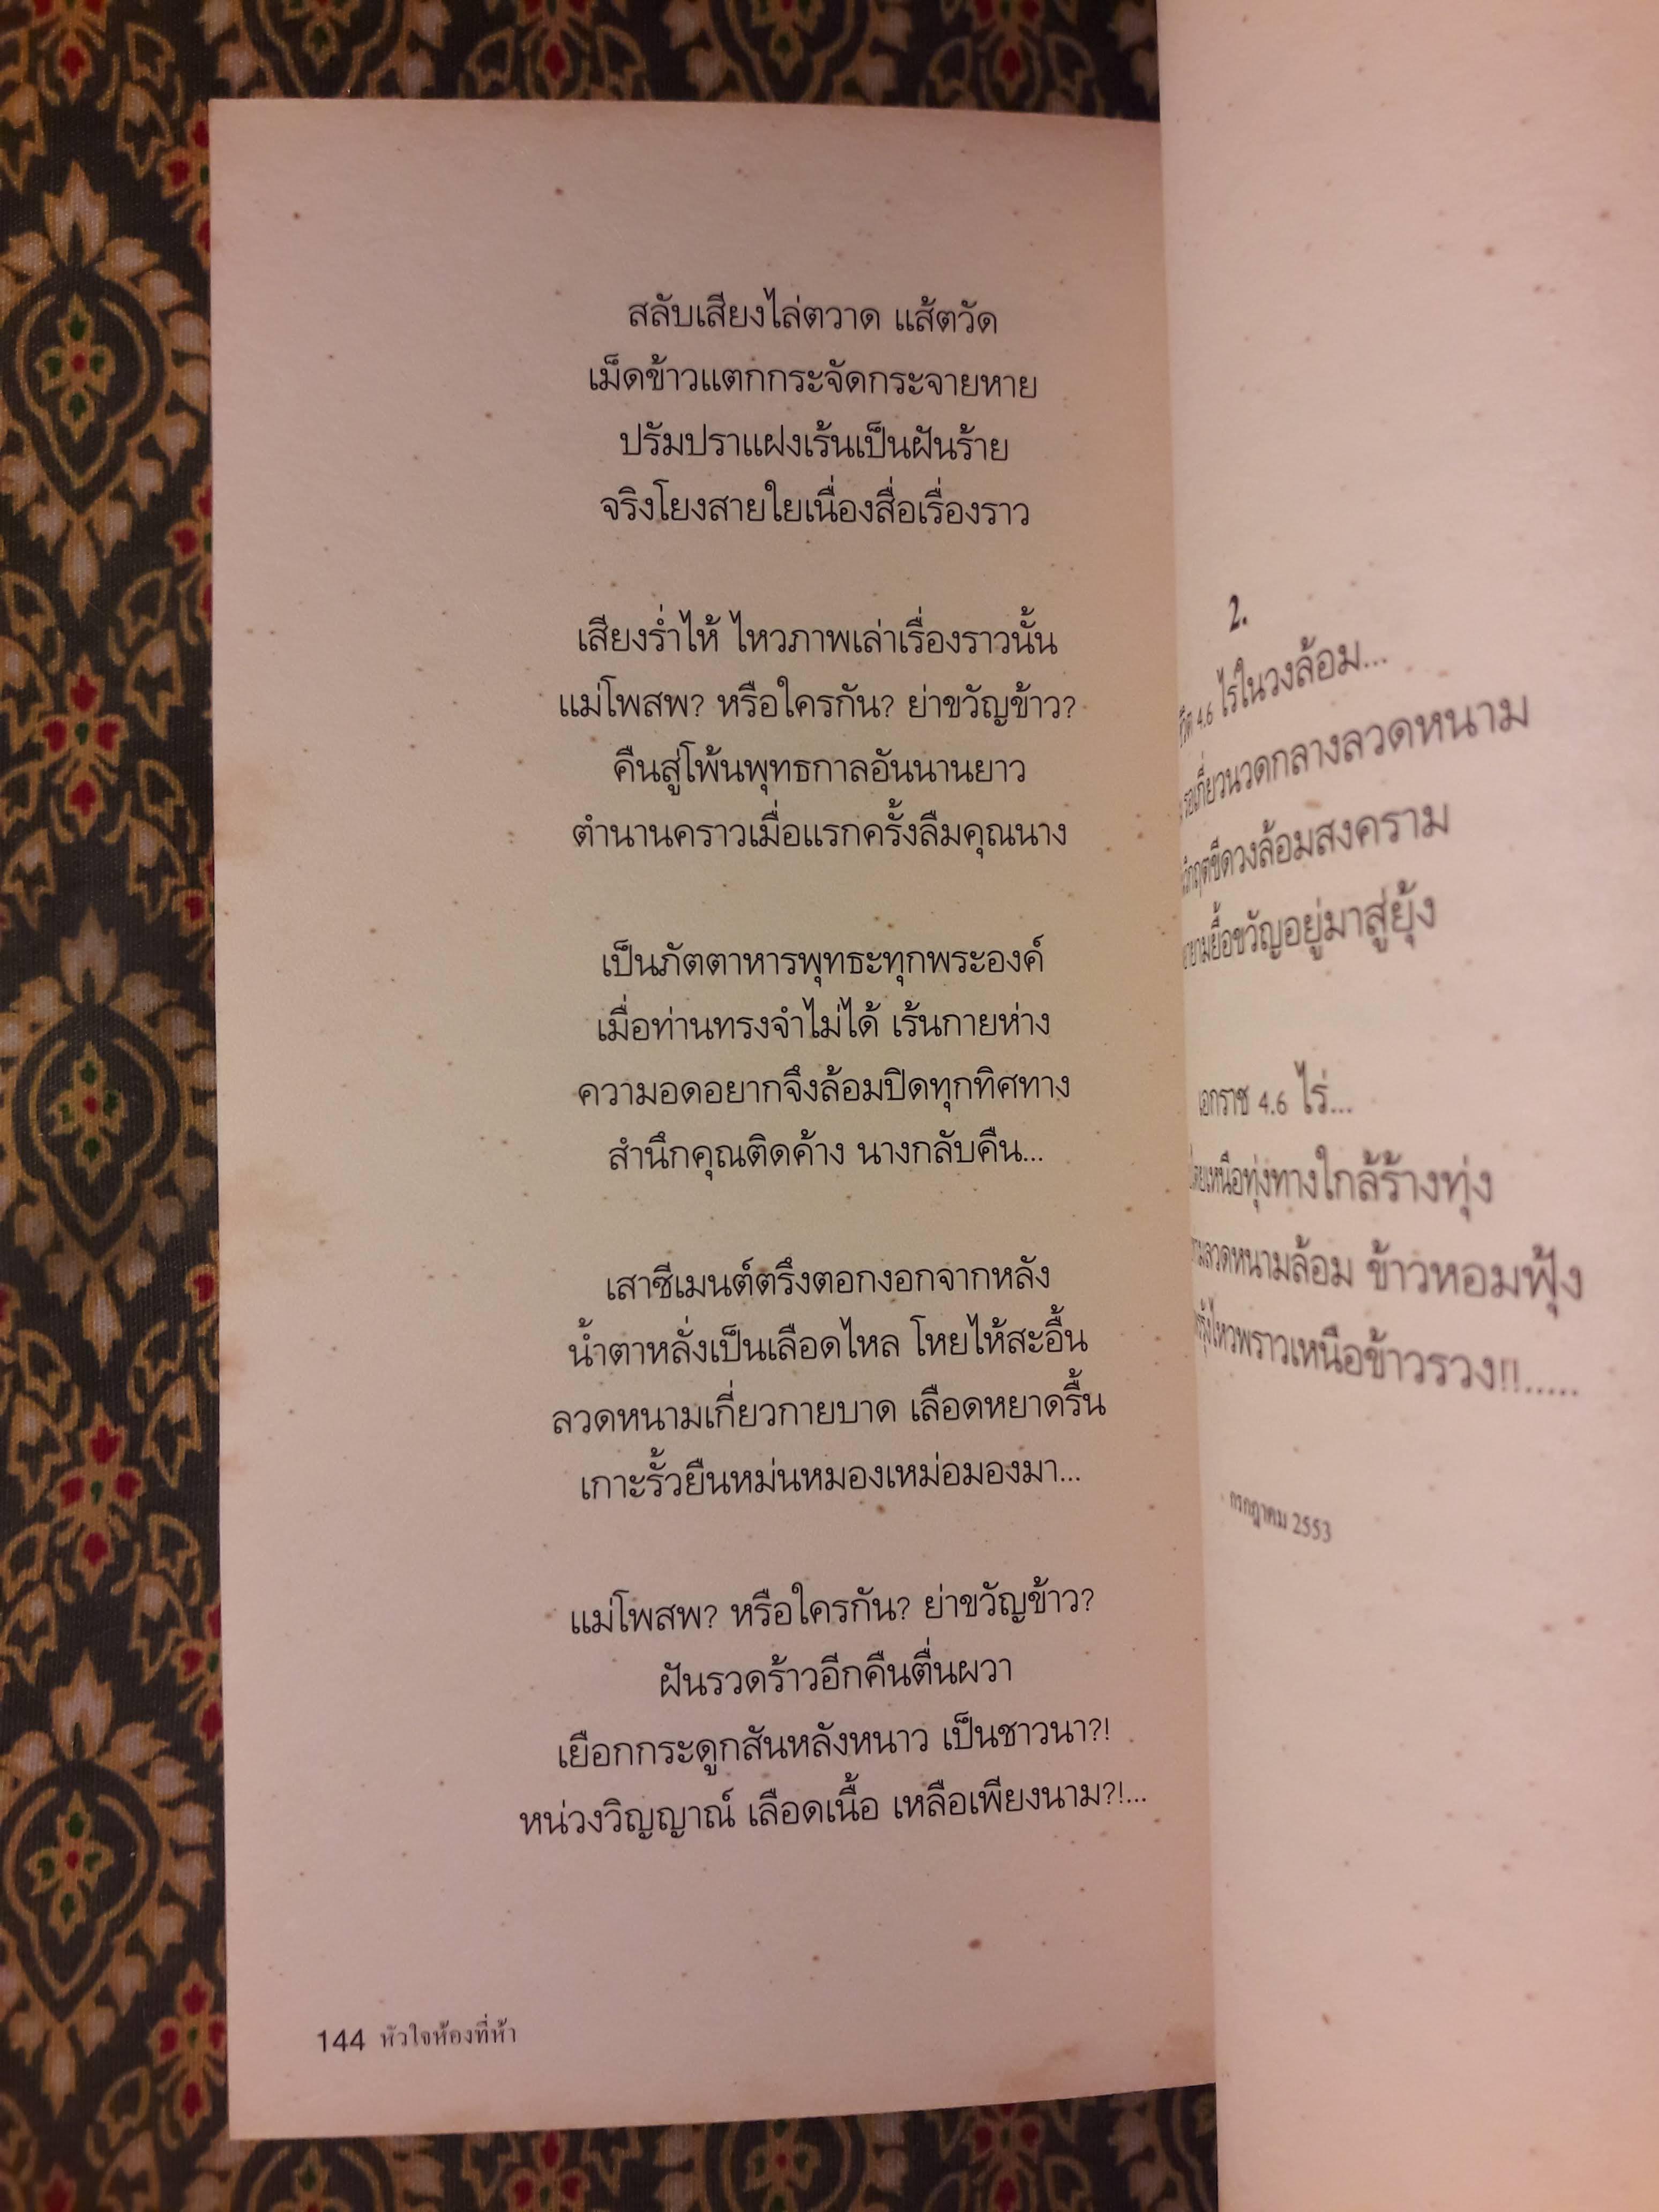 สลับเสียงไล่ตวาด แส้ตวัด
เม็ดข้าวแตกกระจัดกระจายหาย
ปรัมปราแฝงเร้นเป็นฝันร้าย
จริงโยงสายใยเนื่องสื่อเรื่องราว
เสียงร่ำไห้ ไหวภาพเล่าเรื่องราวนั้น
แม่โพสพ? หรือใครกัน? ย่าขวัญข้าว?
คืนสู่โพ้นพุทธกาลอันนานยาว
ตำนานคราวเมื่อแรกครั้งลืมคุณนาง
เป็นภัตตาหารพุทธะทุกพระองค์
เมื่อท่านทรงจำไม่ได้ เร้นกายห่าง
ความอดอยากจึงล้อมปิดทุกทิศทาง
สำนึกคุณติดค้าง นางกลับคืน...
เสาซีเมนต์ตรึงตอกงอกจากหลัง
น้ำตาหลั่งเป็นเลือดไหล โหยไห้สะอื้น
ลวดหนามเกี่ยวกายบาด เลือดหยาดรื้น
เกาะรั้วยืนหม่นหมองเหม่อมองมา...
แม่โพสพ? หรือใครกัน? ย่าขวัญข้าว?
ฝันรวดร้าวอีกคืนตื่นผวา
เยือกกระดูกสันหลังหนาว เป็นชาวนา?!
หน่วงวิญญาณ์ เลือดเนื้อ เหลือเพียงนาม?!...
144 หัวใจห้องที่ห้า
2.
4.6 ไร่ในวงล้อม...
เกี่ยวนวดกลางลวดหนาม
ขีดวงล้อมสงคราม
ยื้อขวัญอยู่มาสู่ยุ้ง
เอกราช 4.6 ไร่...
เหนือทุ่งทางใกล้ร้างทุ่ง
ลวดหนามล้อม ข้าวหอมฟุ้ง
ไหวพราวเหนือข้าวรวง!!.....
กรกฎาคม 2553